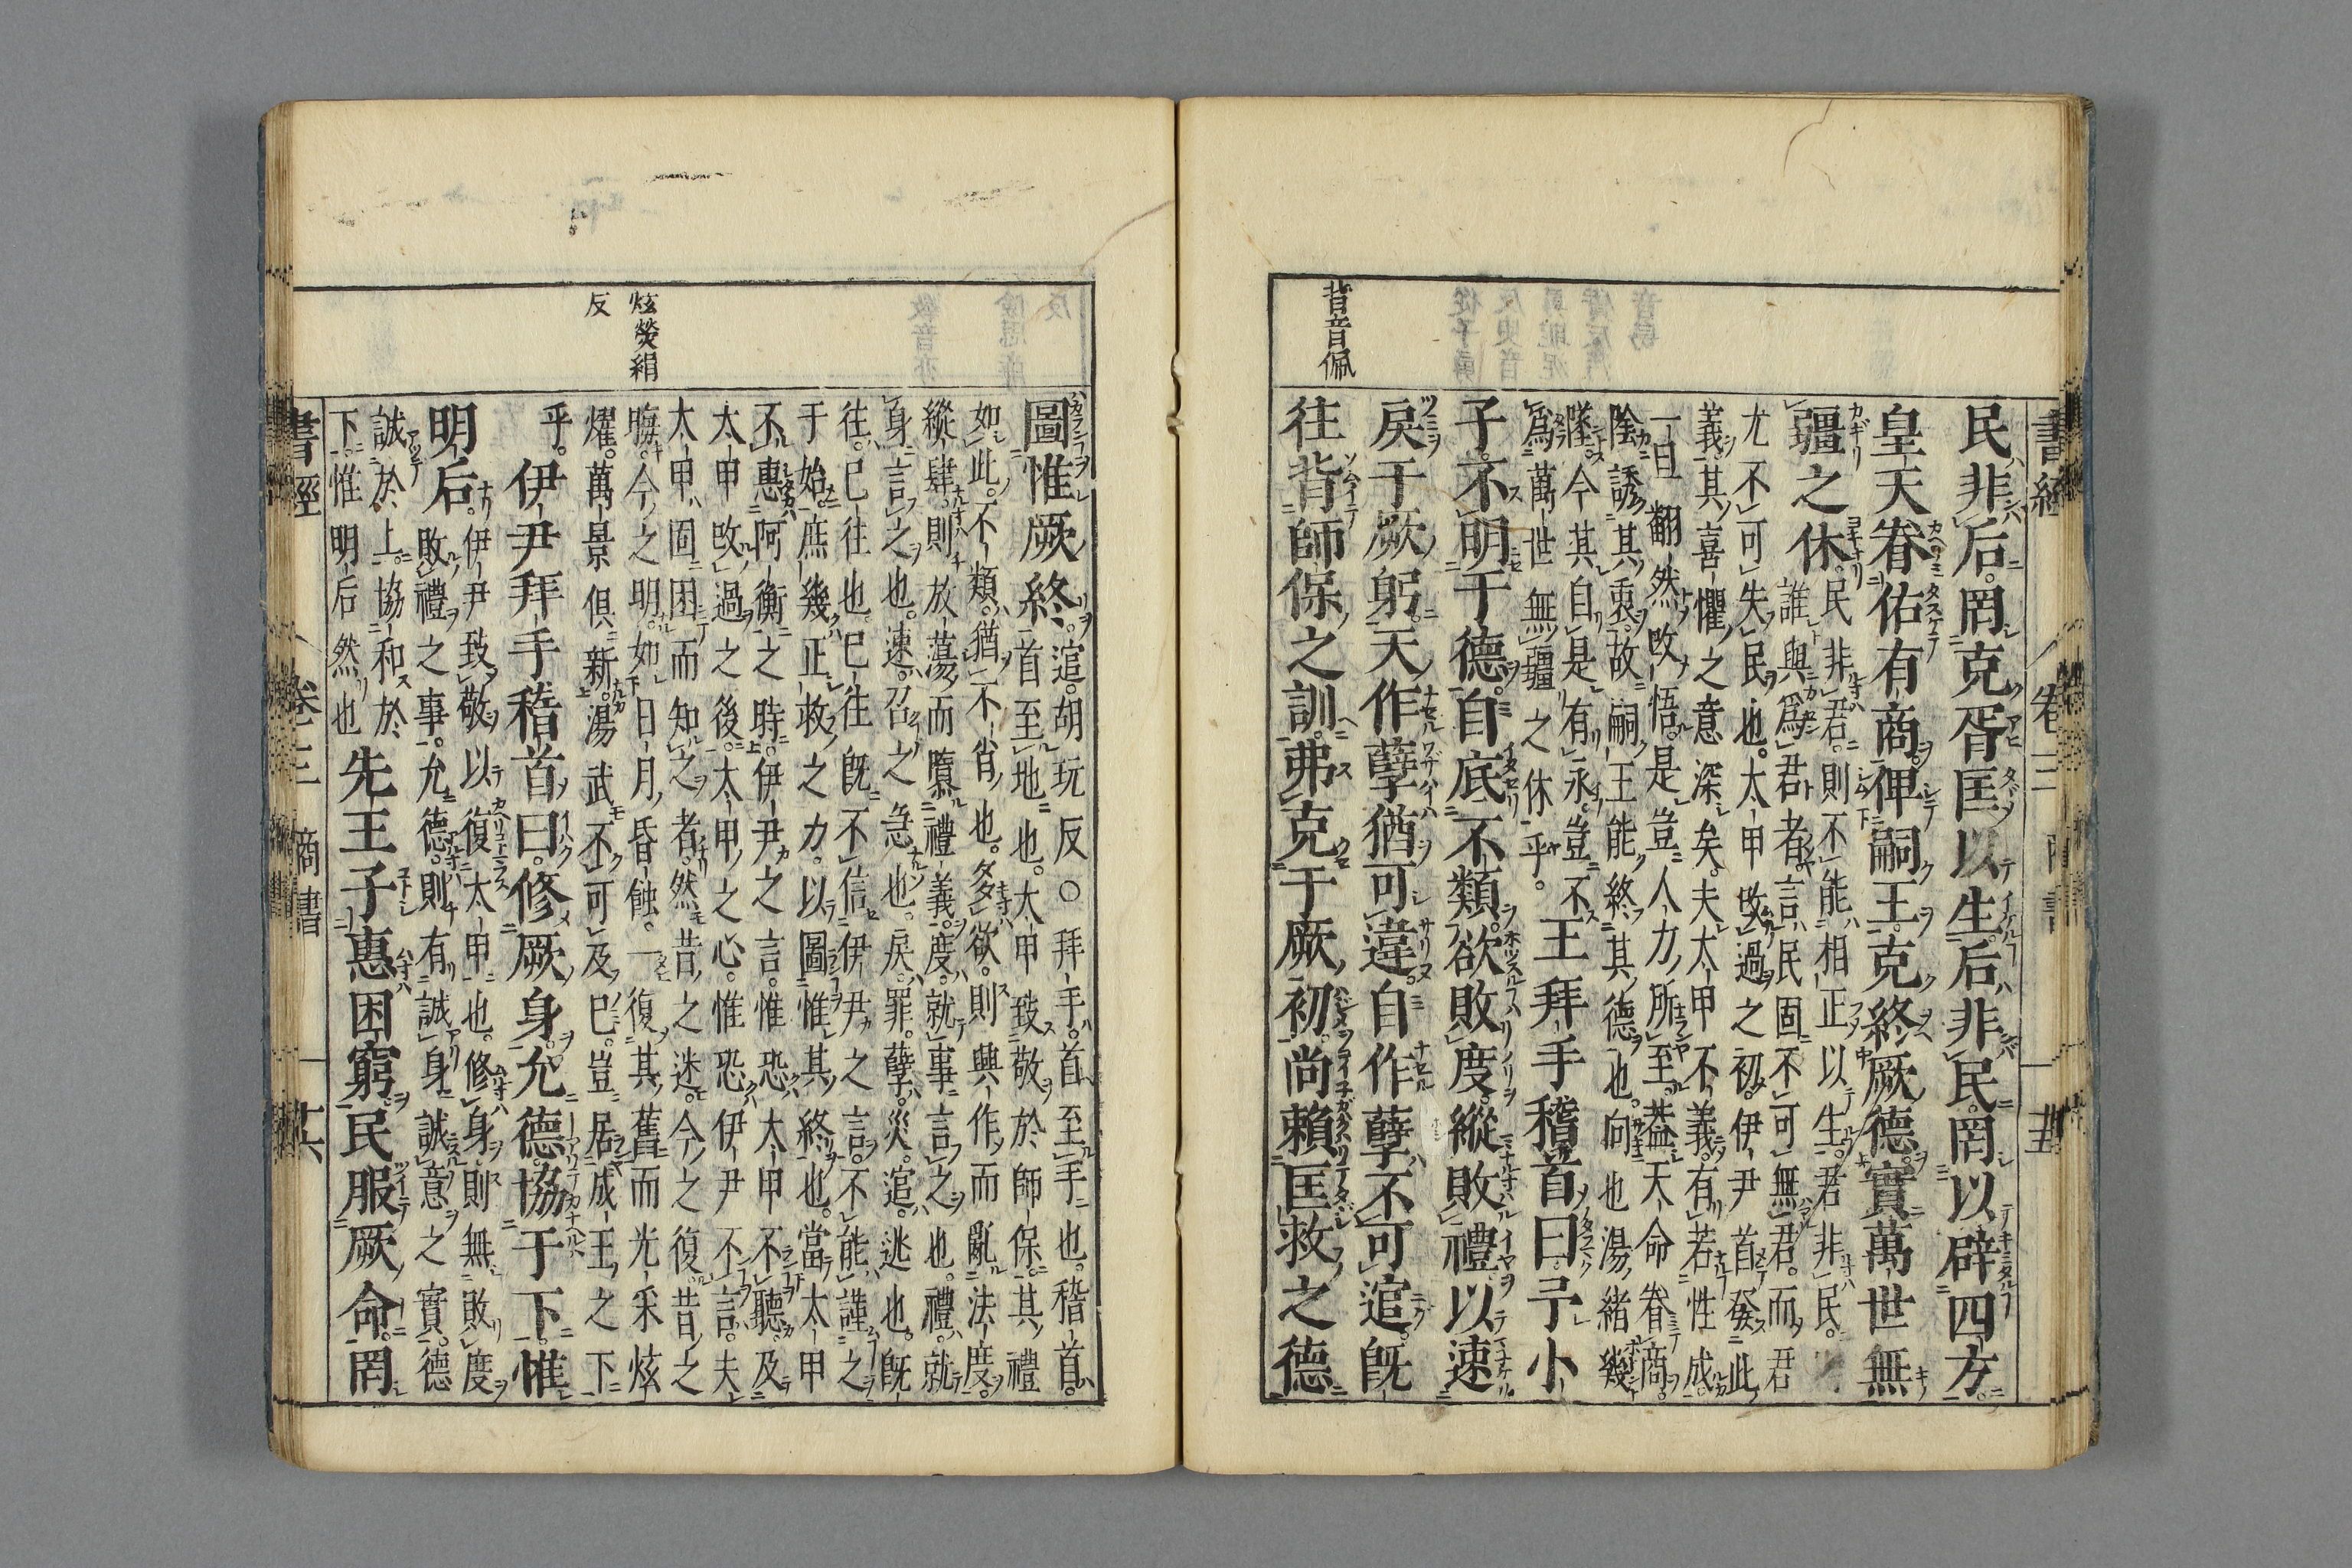 書經 卷三 商書 一 十五
背音佩
民非后。罔克胥匡以生。后非民。罔以辟四方。
皇天眷佑有商。俾嗣王克終厥德。實萬世無
疆之休。
民非君。則不能相正以生。君非民。
誰與爲君者。言民固不可無君。而君
尤不可失民也。太甲改過之初。伊尹首發此
義。其喜懼之意深矣。夫太甲不義。有若性成。
一旦翻然改悟。是豈人力所至。葢天命眷商。
陰誘其衷。故嗣王能終其德也。向也湯緒幾
墜。今其自是有永。豈不
爲萬世無疆之休乎。
王拜手稽首曰。予小
子。不明于德。自底不類。欲敗度。縱敗禮。以速
戾于厥躬。天作孽猶可違。自作孽。不可逭。旣
往背師保之訓。弗克于厥初。尚賴匡救之德
圖惟厥終。
逭。胡玩反○拜手。首至手也。稽首。
首至地也。太甲致敬於師保。其禮
如此。不類。猶不肖也。多欲。則興作。而亂法度。
縱肆。則放蕩而隳禮義。度。就事言之也。禮。就
身言之也。速。召之急也。戾。罪。孽。災。逭。逃也。旣
往。已往也。已往旣不信伊尹之言。不能謹之
于始。庶幾正救之力。以圖惟其終也。當太甲
不惠阿衡之時。伊尹之言。惟恐太甲不聽。及
太甲改過之後。太甲之心。惟恐伊尹不言。夫
太甲固困而知之者。然昔之迷。今之復。昔之
晦。今之明。如日月昏蝕。一復其舊。而光采炫
燿。萬景俱新。湯武不可及已。豈居成王之下
乎。
炫熒絹
反
伊尹拜手稽首曰。修厥身。允德協于下。惟
明后。
伊尹致敬以復太甲也。修身。則無敗度
敗禮之事。允德。則有誠身誠意之實。德
誠於上。協和於
下。惟明后然也
先王子惠困窮。民服厥命。罔
書經 卷三 商書 一 十六